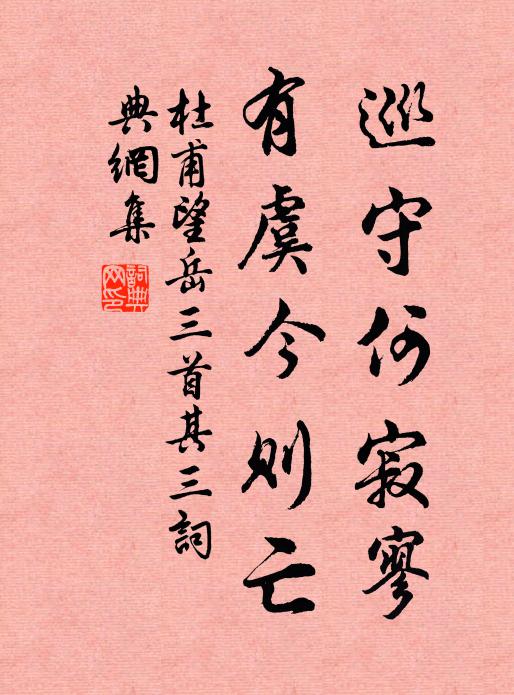 巡守何寂寥
有虞今则亡
杜甫望岳三首其三詞
典網集
詞典
网印